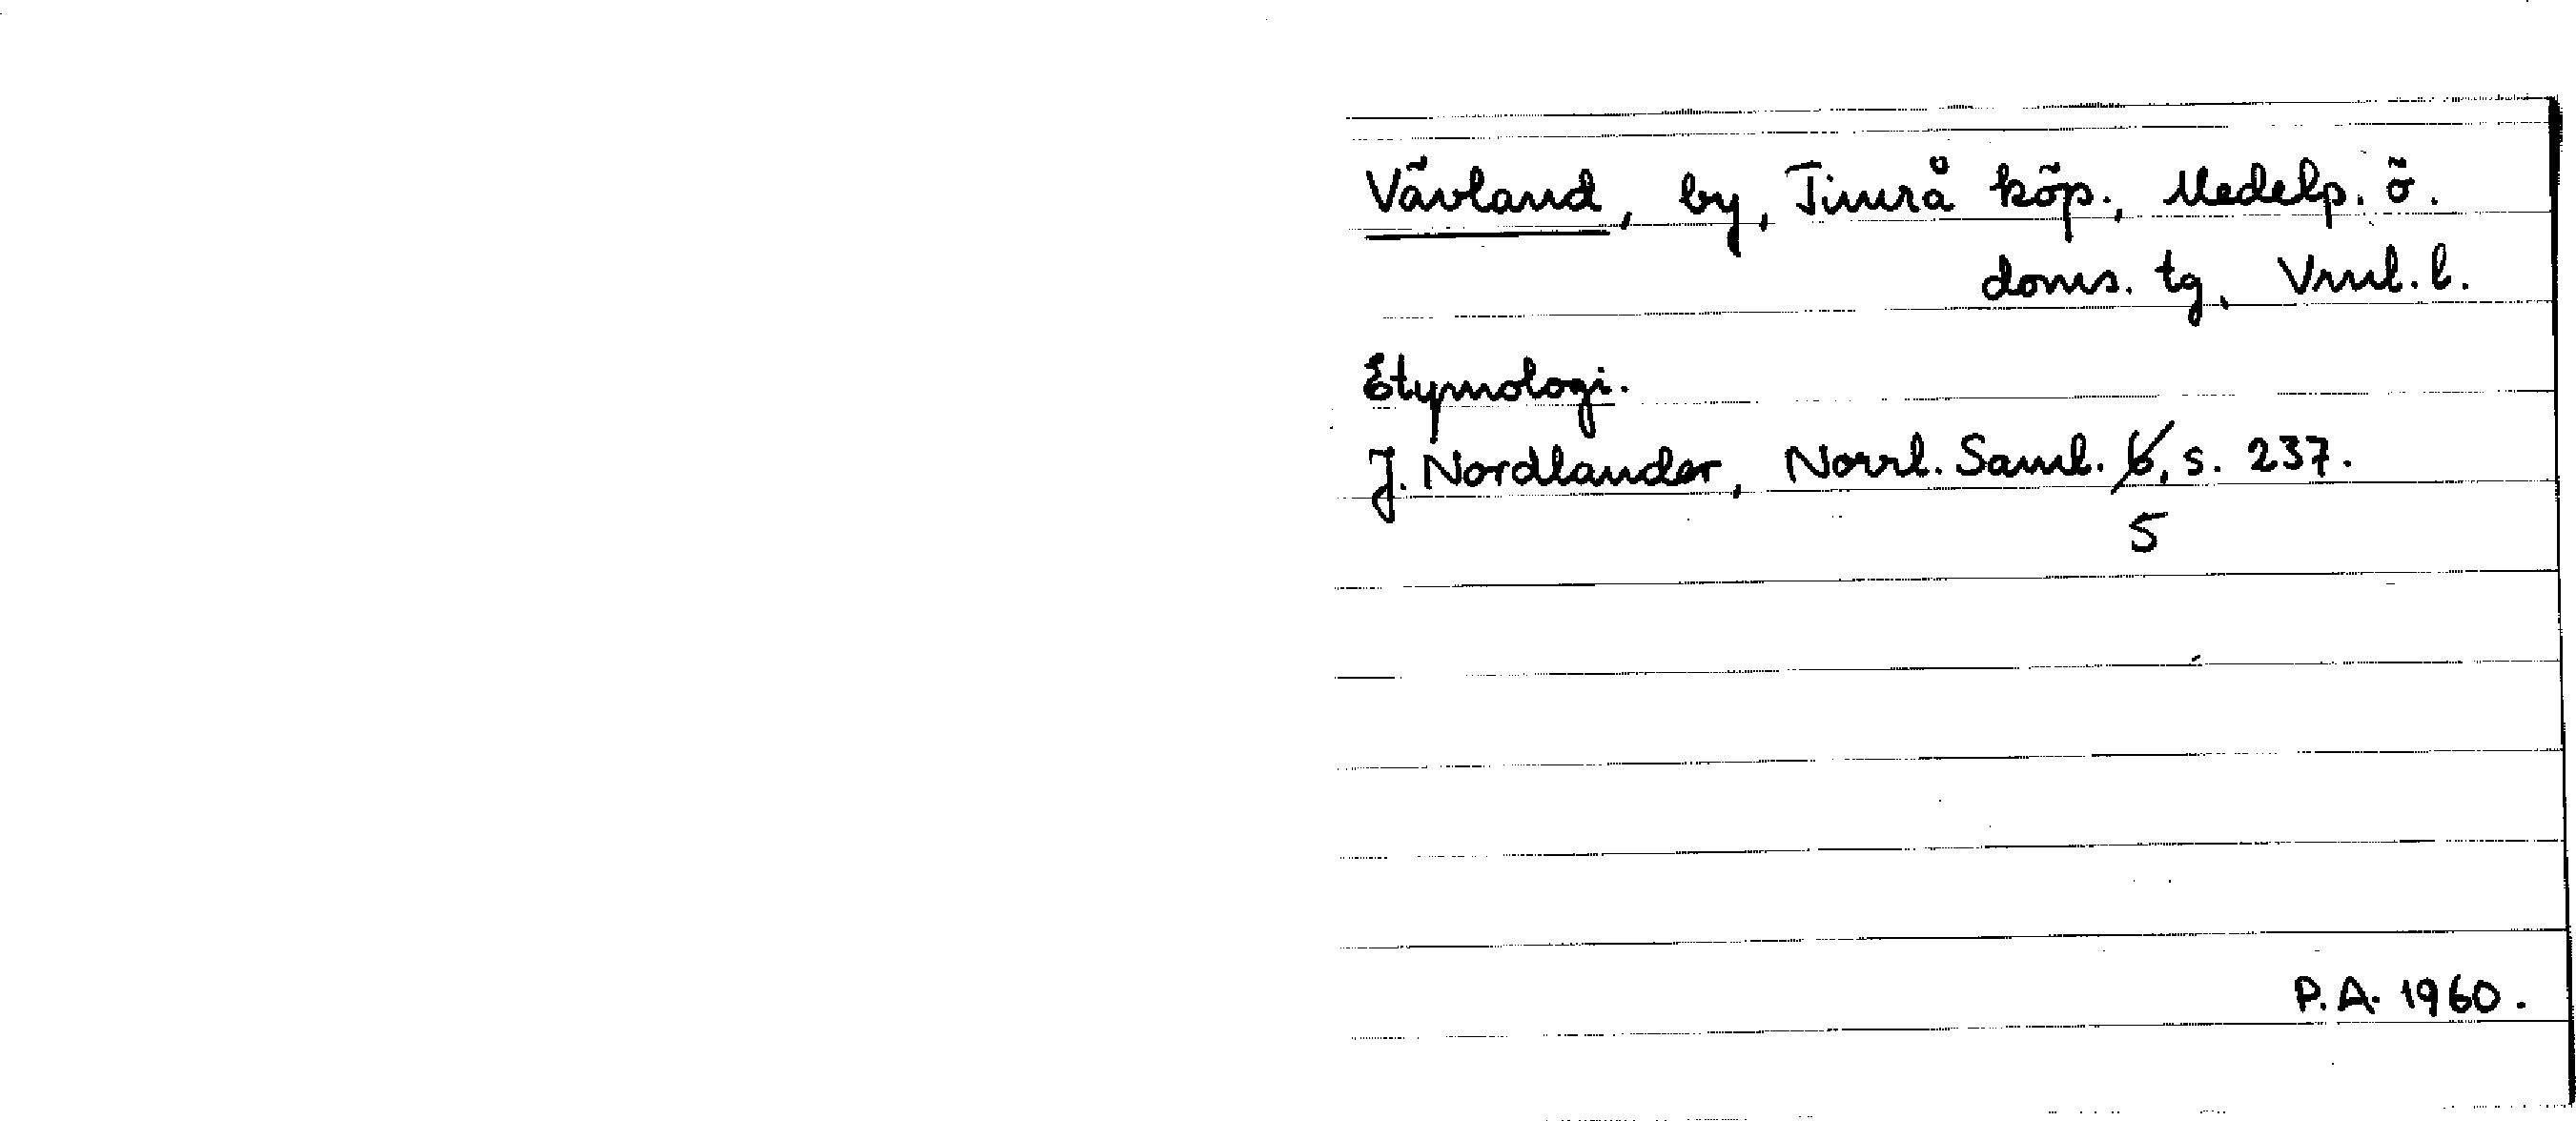 Vävland, by, Timrå köp., Medelp. ö.
doms. tg, Vrnl. l.
Etymologi.
J. Nordlander, Norrl. Saml. 6, s. 237.
5
P.A. 1960.